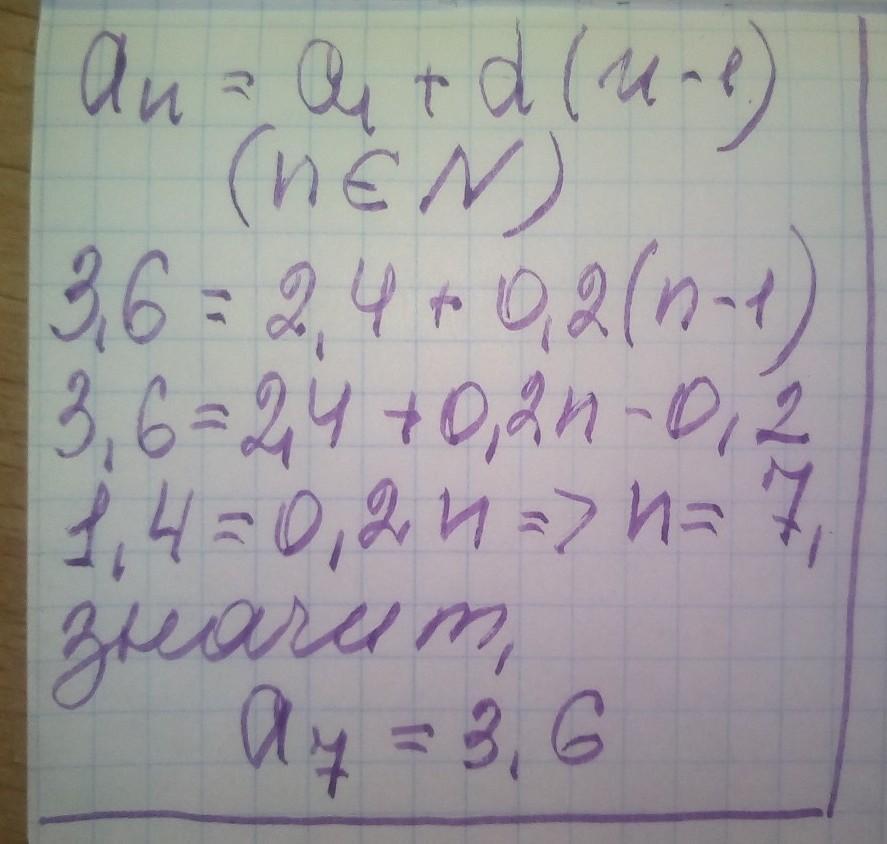 aₙ = a₁ + d(n-1)
(n ∈ N)
3,6 = 2,4 + 0,2(n-1)
3,6 = 2,4 + 0,2n - 0,2
1,4 = 0,2n => n = 7,
значит,
a₇ = 3,6